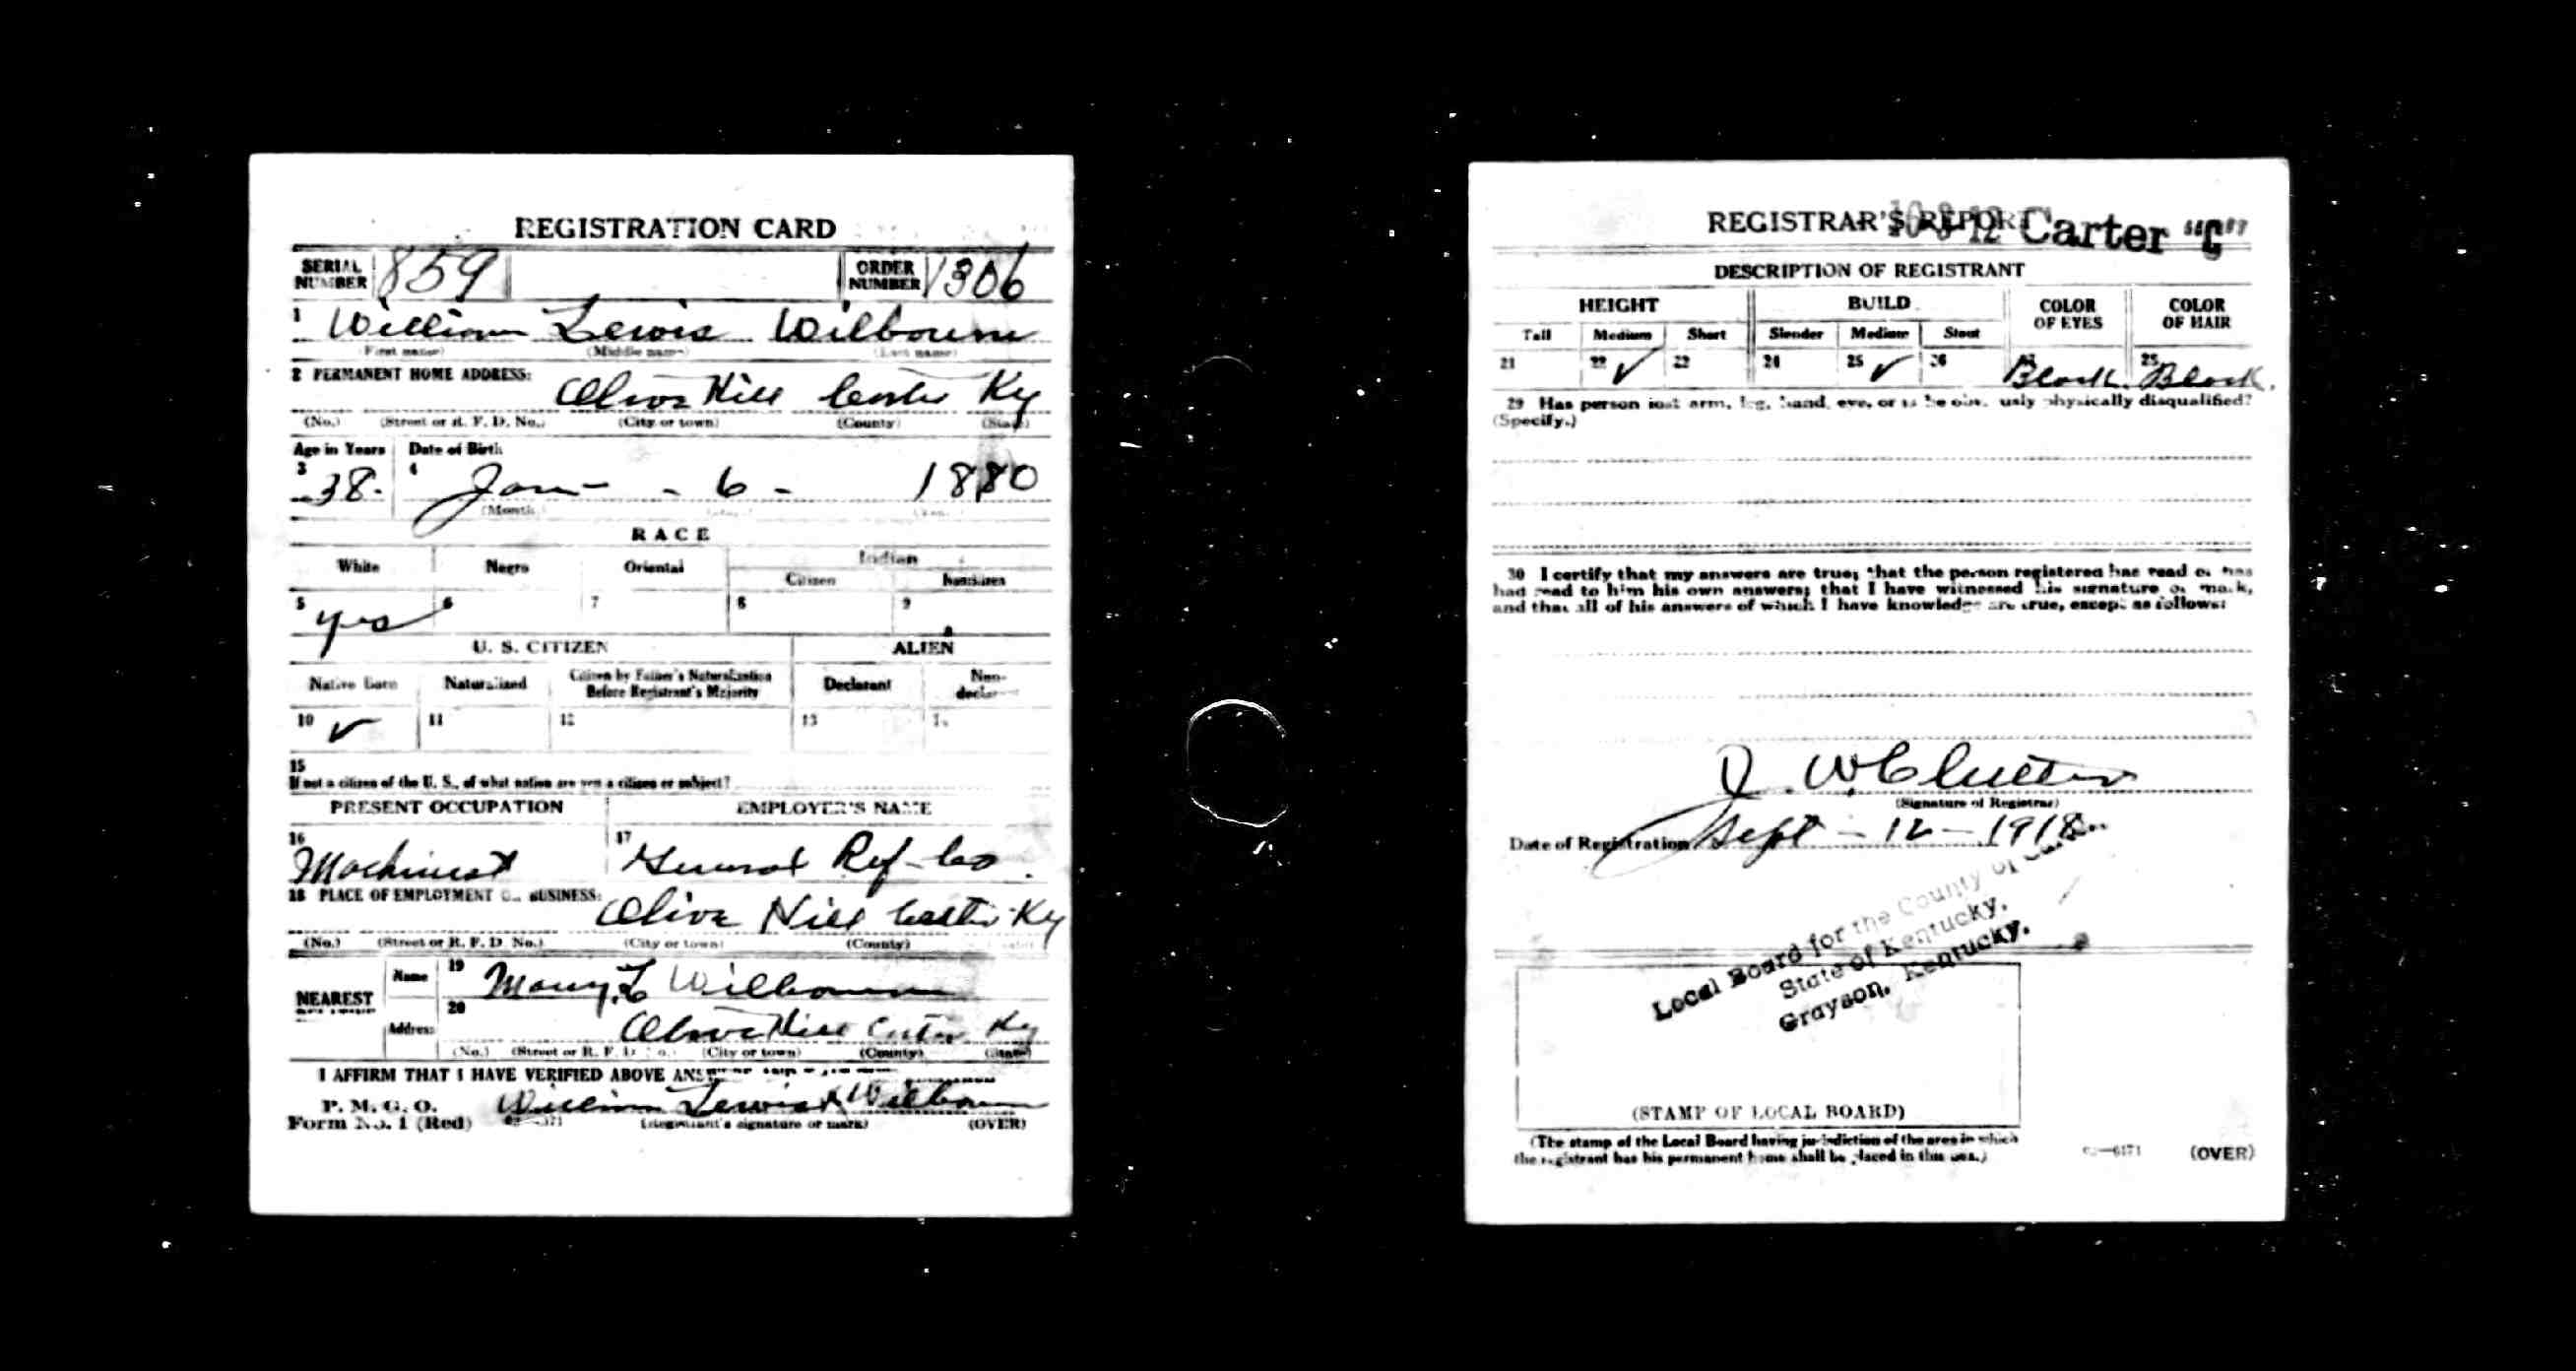 REGISTRATION CARD
SERIAL NUMBER 859 ORDER NUMBER 1306
1 William Lewis Wilbourn
(First name) (Middle name) (Last name)
2 PERMANENT HOME ADDRESS:
Olive Hill Carter Ky
(No.) (Street or R. F. D. No.) (City or town) (County) (State)
Age in Years Date of Birth
3 38. 4 Jan - 6 - 1880
(Month)
RACE
White Negro Oriental Indian
Citizen Noncitizen
5 yes 6 7 8 9
U. S. CITIZEN ALIEN
Native Born Naturalized Citizen by Father's Naturalization Before Registrant's Majority Declarant Non-declarant
10 ✓ 11 12 13
15
If not a citizen of the U. S., of what nation are you a citizen or subject?
PRESENT OCCUPATION EMPLOYER'S NAME
16 Machinist 17 General Ref - Co.
18 PLACE OF EMPLOYMENT OR BUSINESS:
Olive Hill Carter Ky
(No.) (Street or R. F. D. No.) (City or town) (County)
NEAREST
Name 19 Mary L Wilbourn
Address 20 Olive Hill Carter Ky
(No.) (Street or R. F. D. No.) (City or town) (County) (State)
I AFFIRM THAT I HAVE VERIFIED ABOVE
P. M. G. O.
Form No. 1 (Red) William Lewis Wilbourn
(Registrant's signature or mark) (OVER)
REGISTRAR'S REPORT Carter "C"
DESCRIPTION OF REGISTRANT
HEIGHT BUILD COLOR OF EYES COLOR OF HAIR
Tall Medium Short Slender Medium Stout
21 22 ✓ 24 25 ✓ 26 Black Black.
29 Has person lost arm, leg, hand, eye, or is he obviously physically disqualified?
(Specify.)
30 I certify that my answers are true; that the person registered has read or has
had read to him his own answers; that I have witnessed his signature or mark,
and that all of his answers of which I have knowledge are true, except as follows:
(Signature of Registrar)
Date of Registration Sept - 12 - 1918
Local Board for the County of Carter
State of Kentucky,
Grayson, Kentucky.
(STAMP OF LOCAL BOARD)
(The stamp of the Local Board having jurisdiction of the area in which
the registrant has his permanent home shall be placed in this box.)
(OVER)